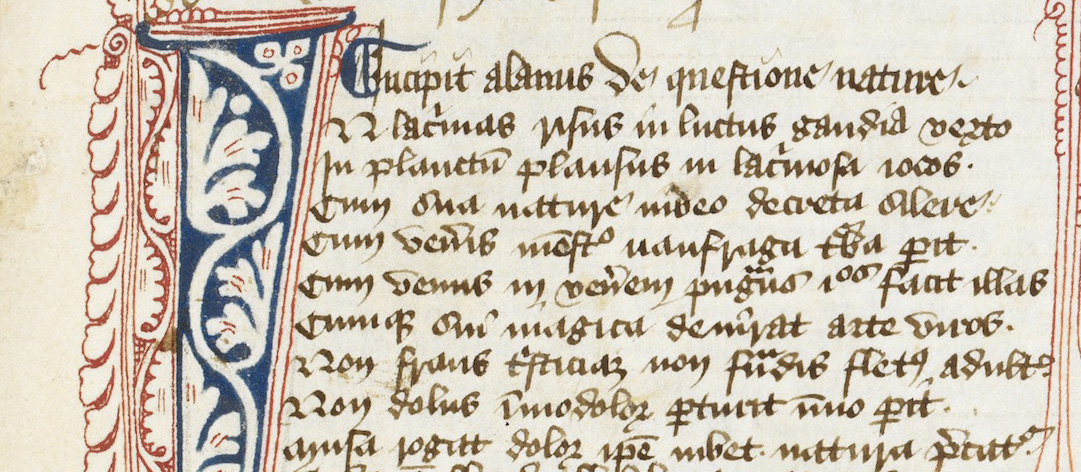 Incipit alanus de questione nature.
N lac̄mas risus in luctus gaudia verto
In planctū plausus in lac̄mosa iocos.
Cum sua nature video decreta silere.
Cum veñis mēst° naufraga tͬba ꝑit.
Cum venus in veñem pugͣns ill̓os facit illas
Cumqꝫ suos magica deuirat arte viros.
Non fraus t̓sticiaꝫ non fͣudis fletꝰ adult̓
Non dolus īmo doloꝝ ꝑturit īmo ꝑit.
Musa rogat dolor ip̄e iubet natura p̄catͬ